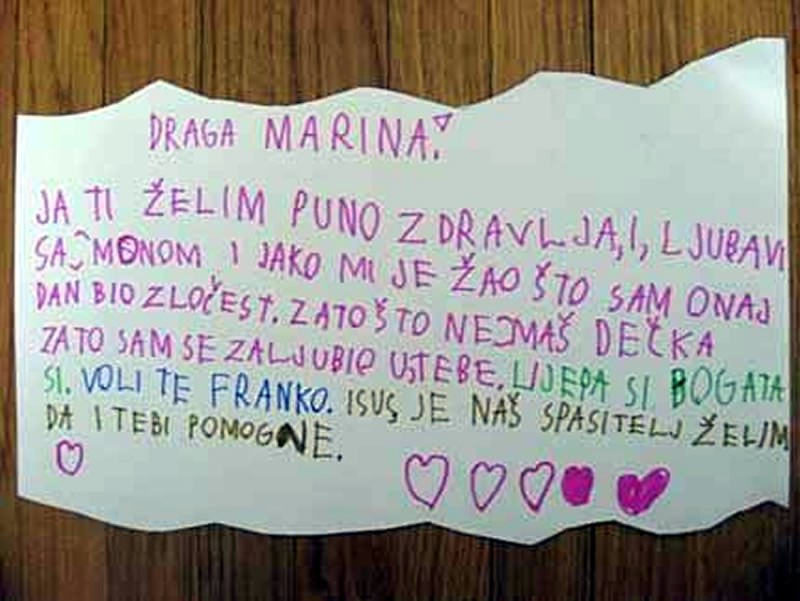 DRAGA MARINA!
JA TI ŽELIM PUNO ZDRAVLJA, I, LJUBAVI
SA MONOM I JAKO MI JE ŽAO ŠTO SAM ONAJ
DAN BIO ZLOČEST. ZATO ŠTO NEJMAŠ DEČKA
ZATO SAM SE ZALJUBIO U TEBE. LIJEPA SI BOGATA
SI. VOLI TE FRANKO. ISUS JE NAŠ SPASITELJ ŽELIM
DA I TEBI POMOGNE.